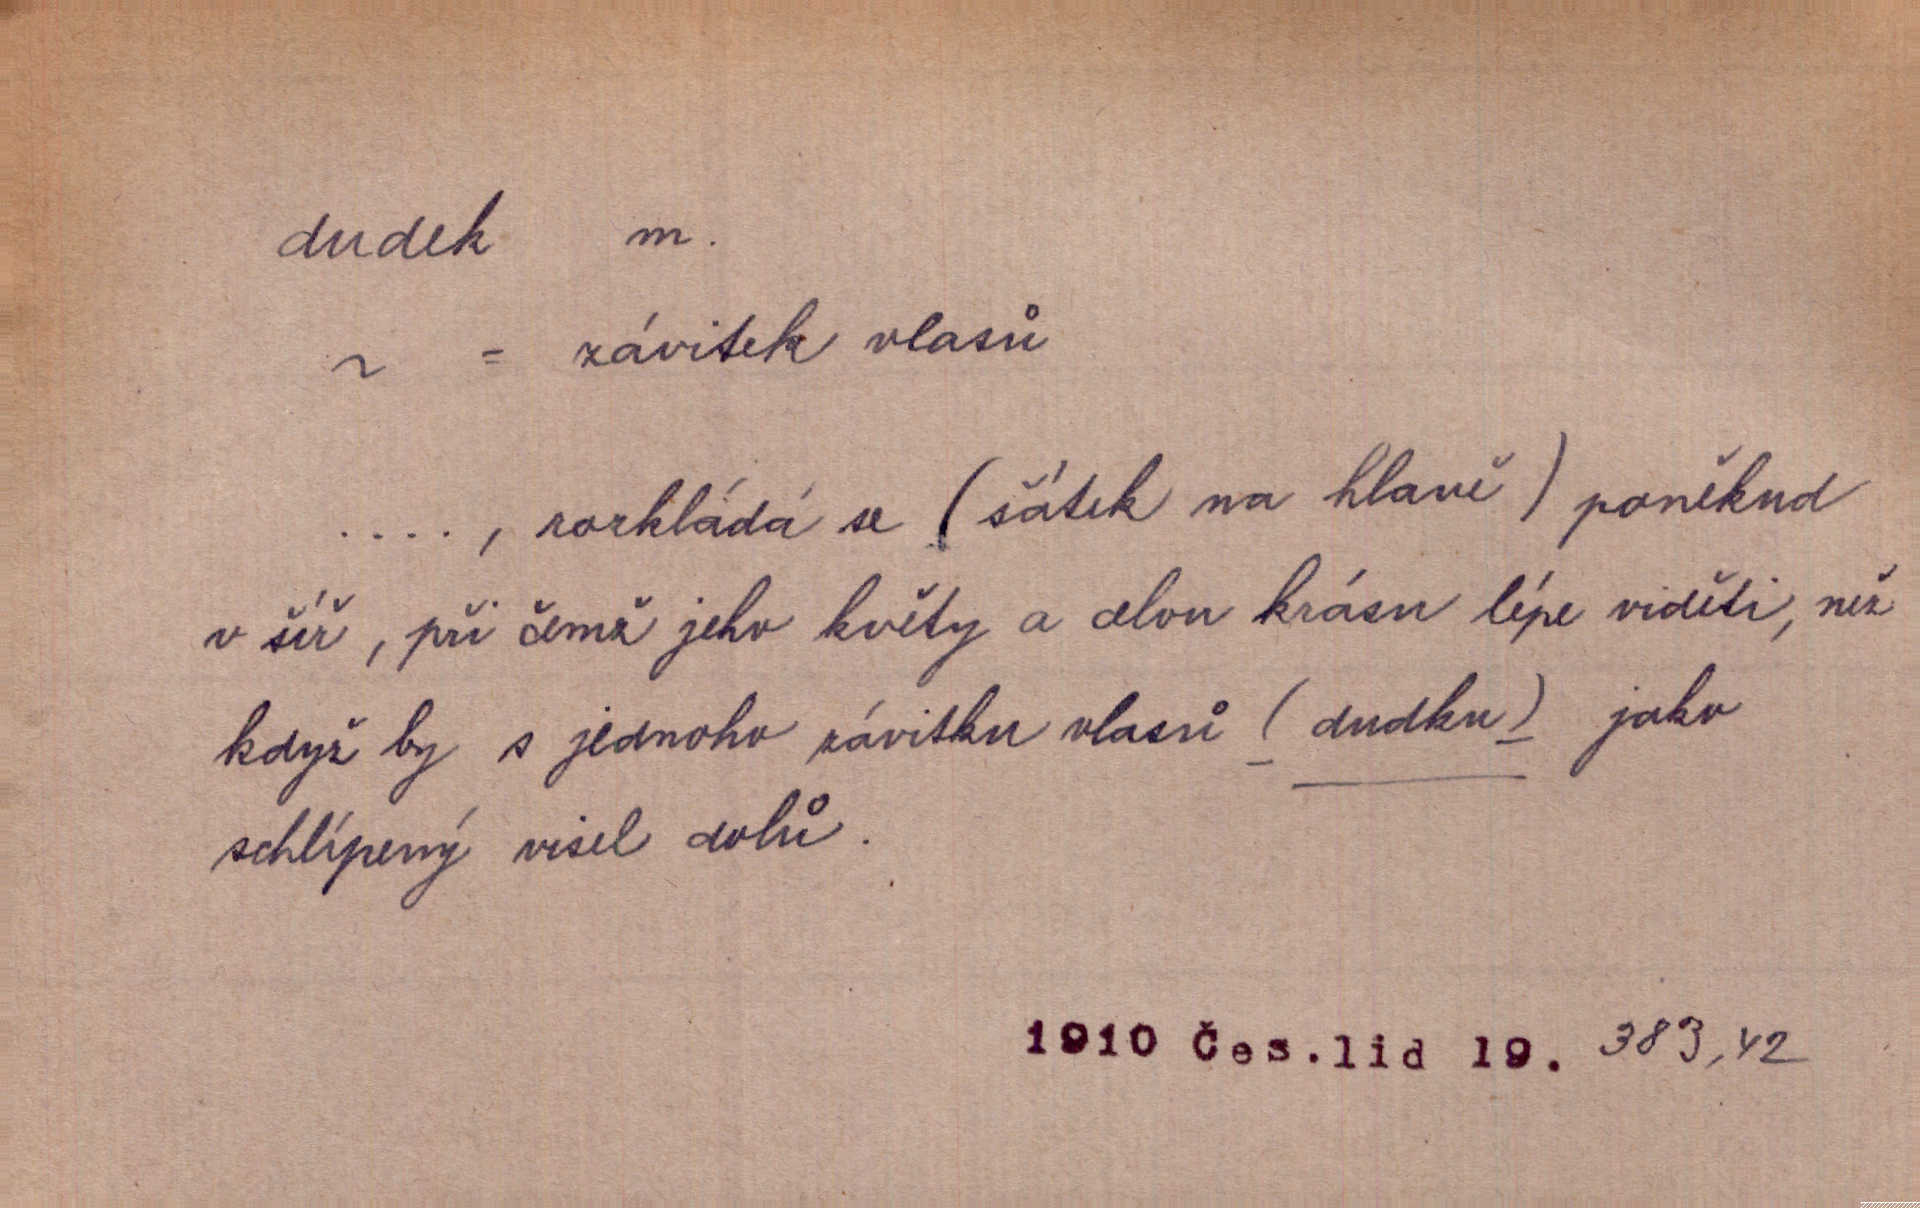 dudek m.
~ = závitek vlasů
...., rozkládá se (šátek na hlavě) poněkud
v šíř, při čemž jeho květy a celou krásu lépe viděti, než
když by s jednoho závitku vlasů (dudku) jako
schlípený visel dolů.
1910 Čes.lid 19. 383,42